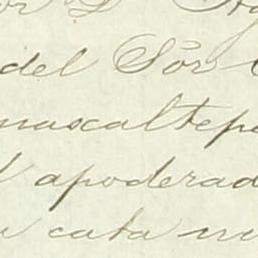 del Sõr
mascaltepe
apoderad
cata mi